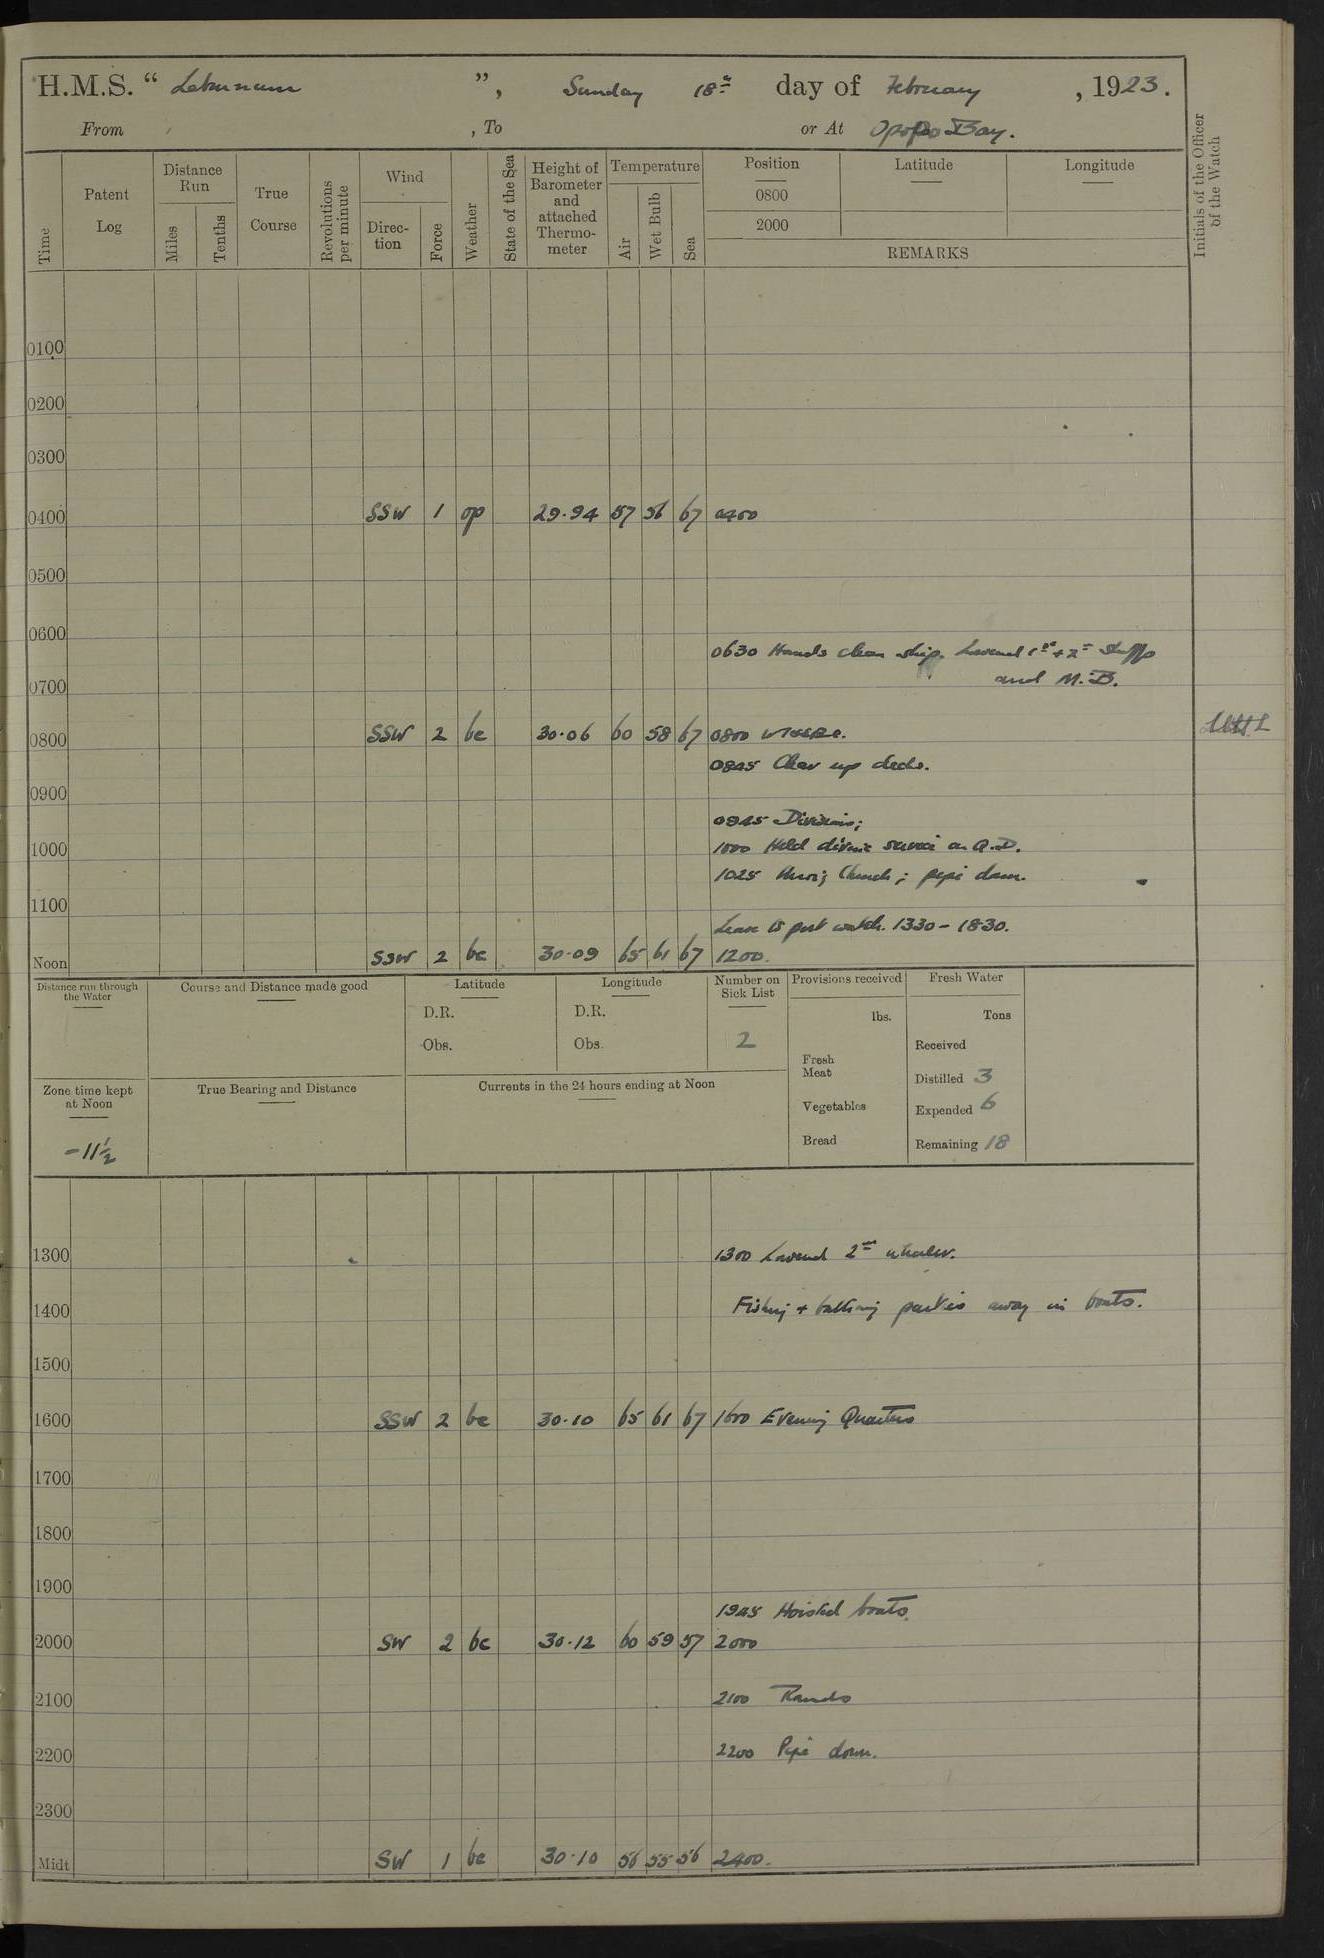 H.M.S. " Laburnum ", Sunday 18th day of February, 1923.
From , To or At Opopo Bay.
Time
Patent Log
Distance Run
Miles
Tenths
True Course
Revolutions per minute
Wind
Direction
Force
Weather
State of the Sea
Height of Barometer and attached Thermometer
Temperature
Air
Wet Bulb
Sea
Position Latitude Longitude
0800
2000
REMARKS
Initials of the Officer of the Watch
0100
0200
0300
0400 SSW 1 op 29.94 57 56 67 0400
0500
0600
0630 Hands clean ship. Lowered 1st + 2nd skiffs
and M.B.
0700
0800 SSW 2 bc 30.06 60 58 67 0800
0845 Clear up decks.
0900
0945 Divisions;
1000 1000 Held divine service on Q.D.
1025 Church; pipe down.
1100
Leave to port watch. 1330 - 1830.
Noon SSW 2 bc 30.09 65 61 67 1200.
Distance run through the Water
Course and Distance made good
Latitude
D.R.
Obs.
Longitude
D.R.
Obs.
Number on Sick List
2
Provisions received
lbs.
Fresh Meat
Vegetables
Bread
Fresh Water
Tons
Received
Distilled 3
Expended 6
Remaining 18
Zone time kept at Noon
-11½
True Bearing and Distance
Currents in the 24 hours ending at Noon
1300 1300 Lowered 2nd whaler.
1400 Fishing + bathing parties away in boats.
1500
1600 SSW 2 bc 30.10 65 61 67 1600 Evening Quarters
1700
1800
1900
1945 Hoisted boats.
2000 SW 2 bc 30.12 60 59 57 2000
2100 2100 Rounds
2200 2200 Pipe down.
2300
Midt SW 1 bc 30.10 56 55 56 2400.